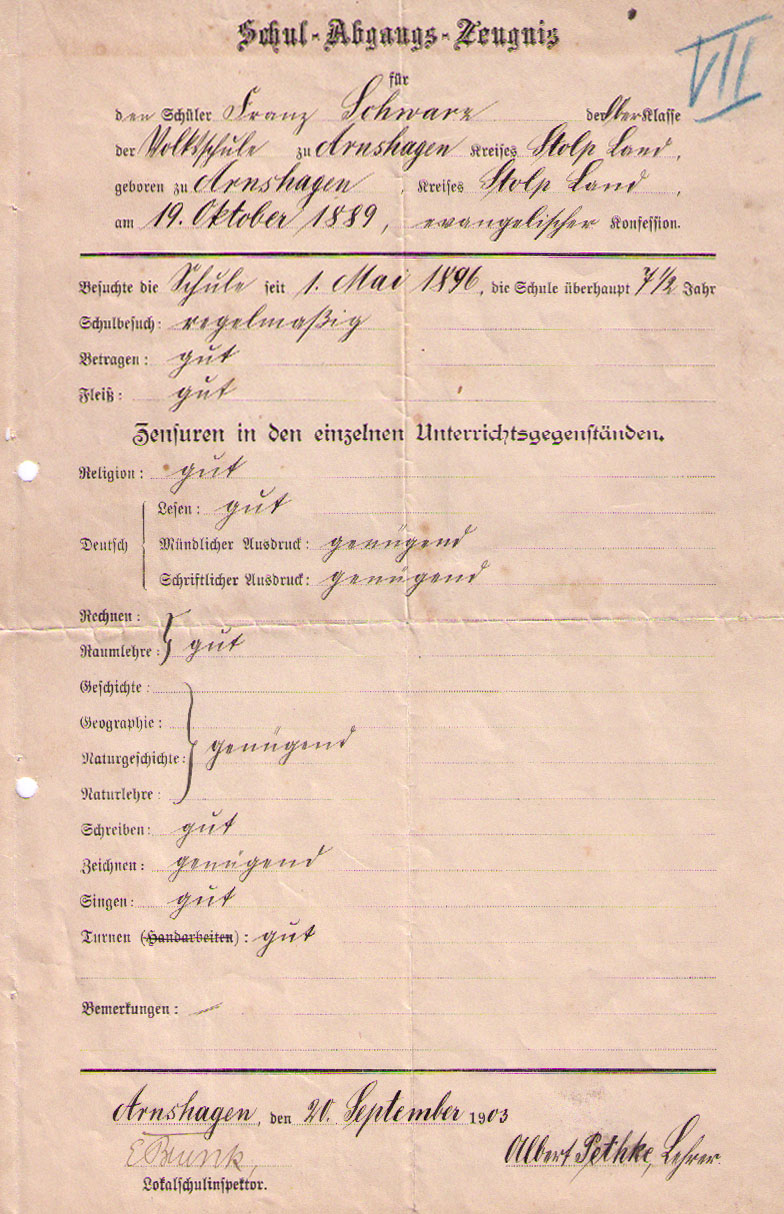 Schul-Abgangs-Zeugnis
VII
für
den Schüler Franz Schwarz der Ober Klasse
der Volksschule zu Arnshagen Kreises Stolp Land,
geboren zu Arnshagen, Kreises Stolp Land,
am 19. Oktober 1889, evangelischer Konfession.
Besuchte die Schule seit 1. Mai 1896, die Schule überhaupt 7 1/2 Jahr
Schulbesuch: regelmäßig
Betragen: gut
Fleiß: gut
Zensuren in den einzelnen Unterrichtsgegenständen.
Religion: gut
Deutsch
Lesen: gut
Mündlicher Ausdruck: genügend
Schriftlicher Ausdruck: genügend
Rechnen:
Raumlehre: gut
Geschichte:
Geographie:
Naturgeschichte: genügend
Naturlehre:
Schreiben: gut
Zeichnen: genügend
Singen: gut
Turnen (Handarbeiten): gut
Bemerkungen: —
Arnshagen, den 20. September 1903
Albert Pethke, Lehrer.
Lokalschulinspektor.